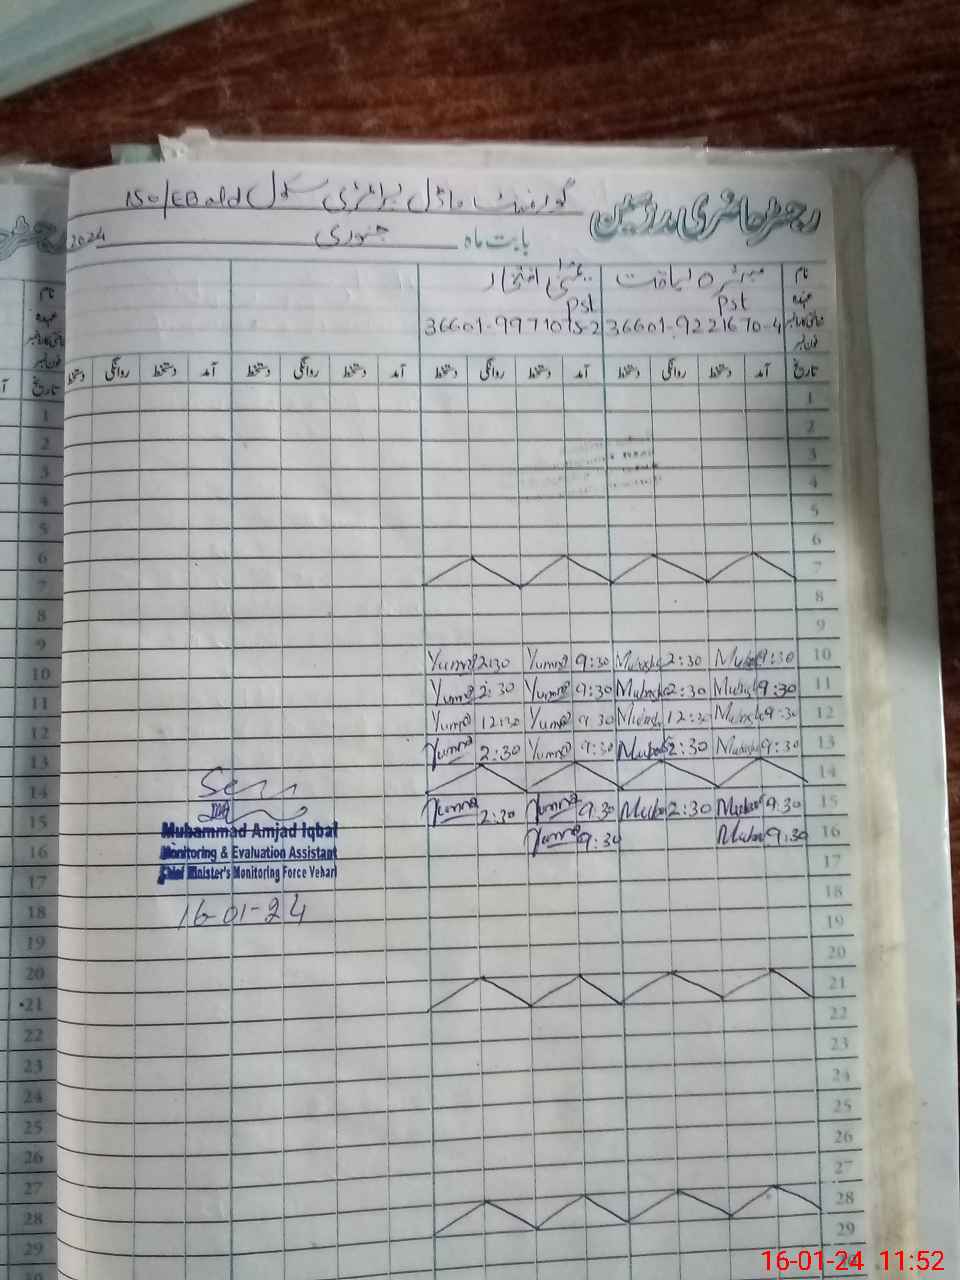 رجسٹر حاضری مدرسین گورنمنٹ ماڈل پرائمری سکول 150/EB old
بابت ماہ جنوری 2024
نام
عہدہ Pst Pst
شناختی کارڈ نمبر 36601-9221670-4 36601-9971015-2
فون نمبر
تاریخ آمد دستخط روانگی دستخط آمد دستخط روانگی دستخط آمد دستخط روانگی دستخط آمد دستخط روانگی دستخط
1
2
3
4
5
6
7
8
9
10 9:30 2:30 9:30 Yumna 2:30 Yumna
11 9:30 2:30 9:30 Yumna 2:30 Yumna
12 9:30 12:30 9:30 Yumna 12:30 Yumna
13 9:30 2:30 9:30 Yumna 2:30 Yumna
14
15 9:30 2:30 9:30 Yumna 2:30 Yumna
16 9:30 9:30 Yumna
17
18
19
20
21
22
23
24
25
26
27
28
29
Muhammad Amjad Iqbal
Monitoring & Evaluation Assistant
Chief Minister's Monitoring Force Vehari
16-01-24
نام
عہدہ
تاریخ
1
2
3
4
5
6
7
8
9
10
11
12
13
14
15
16
17
18
19
20
21
22
23
24
25
26
27
28
29
16-01-24 11:52